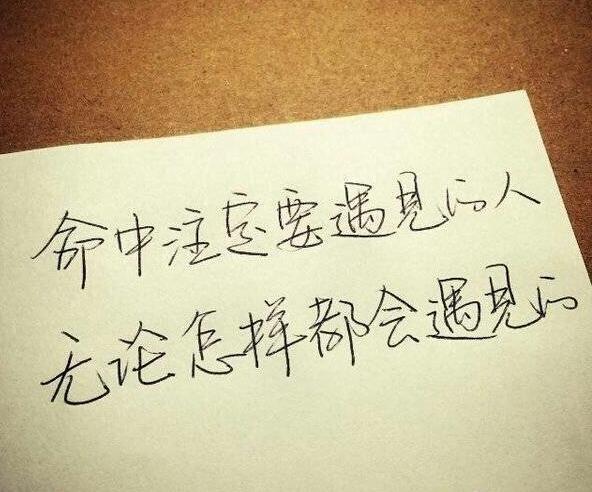 命中注定要遇见的人
无论怎样都会遇见的